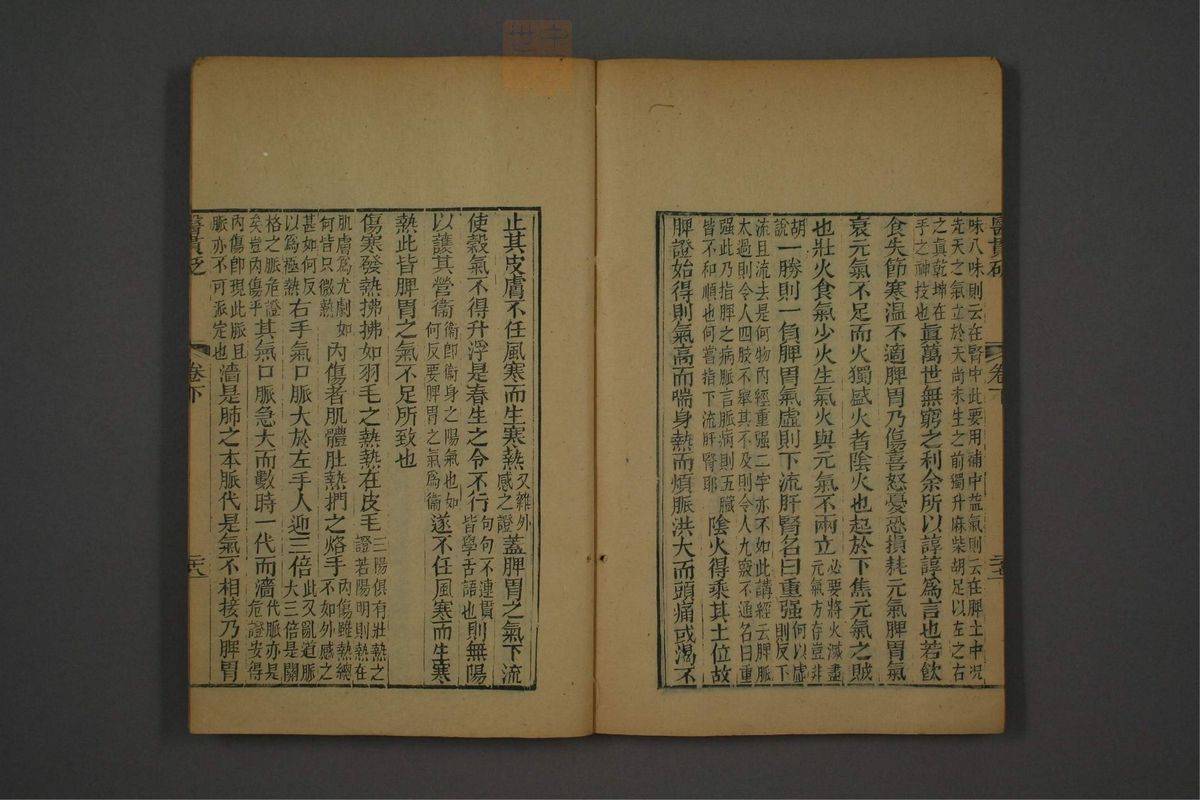 味八味則云在腎中此要用補中益氣則云在脾土中況
先天之氣立於天尚未生之前獨升麻柴胡足以左之右
之真乾坤在
手之神技也
真萬世無窮之利余所以諄諄為言也若飲
食失節寒温不適脾胃乃傷喜怒憂恐損耗元氣脾胃氣
衰元氣不足而火獨盛火者陰火也起於下焦元氣之賊
也壯火食氣少火生氣火與元氣不兩立
必要將火滅盡
元氣方存豈非
胡
說
一勝則一負脾胃氣虛則下流肝腎名曰重强
何以虛
則反下
流且流去是何物內經重强二字亦不如此講經云脾脈
太過則令人四肢不舉其不及則令人九竅不通名曰重
强此乃指脾之病脈言脈病則五臟
皆不和順也何嘗指下流肝腎耶
陰火得乘其土位故
脾證始得則氣高而喘身熱而煩脈洪大而頭痛或渴不
醫貫砭
卷下
止其皮膚不任風寒而生寒熱
又雜外
感之證
蓋脾胃之氣下流
使穀氣不得升浮是春生之令不行
句句不連貫
皆學舌語也
則無陽
以護其營衞
衞即衞身之陽氣也如
何反要脾胃之氣為衞
遂不任風寒而生寒
熱此皆脾胃之氣不足所致也
傷寒發熱拂拂如羽毛之熱熱在皮毛
三陽俱有壯熱之
證若陽明則熱在
肌膚為尤劇如
何皆只微熱
內傷者肌體壯熱捫之烙手
內傷雖熱總
不如外感之
甚如何反
以為極熱
右手氣口脈大於左手人迎三倍
此又亂道脈
大三倍是關
格之脈危證
矣豈內傷乎
其氣口脈急大而數時一代而濇
代脈亦是
危證豈得
內傷即現此脈且
脈亦不可派定也
濇是肺之本脈代是氣不相接乃脾胃
醫貫砭
卷下